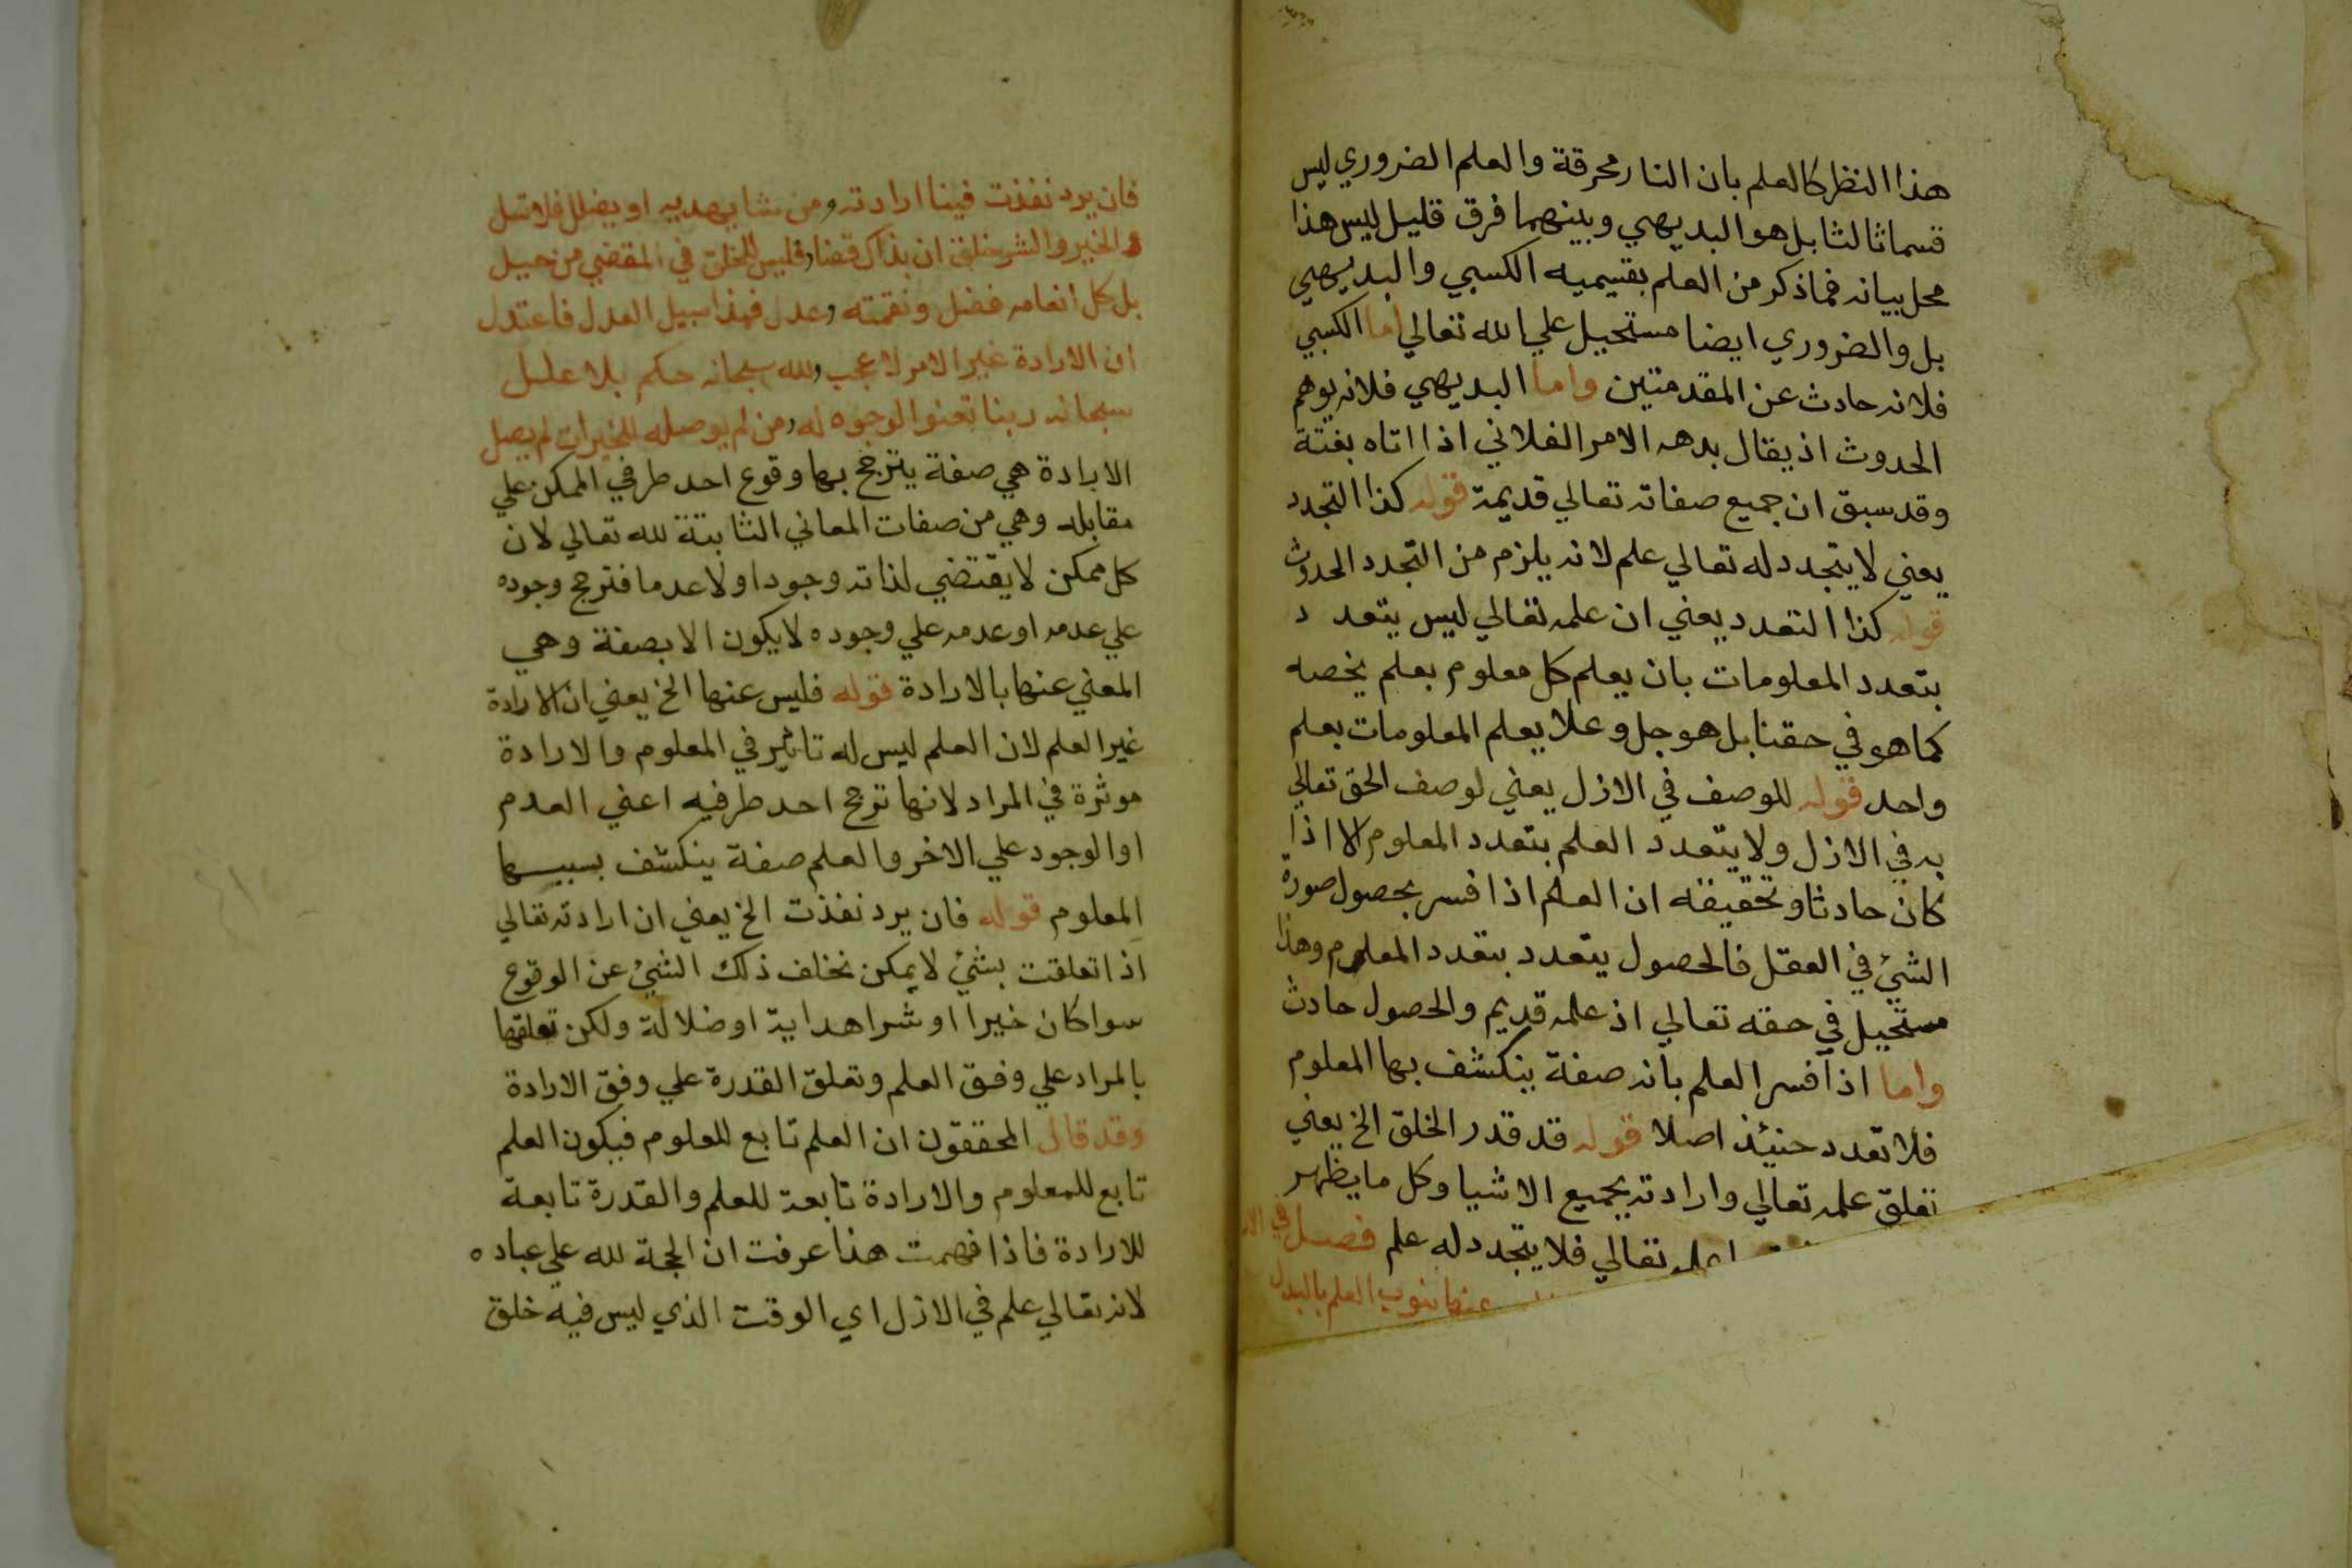 هذا النظر كالعلم بان النار محرقة والعلم الضروري ليس
قسما ثالثا بل هو البديهي وبينهما فرق قليل ليس هذا
محل بيانه فما ذكر من العلم بقسيميه الكسبي والبديهي
بل والضروري ايضا مستحيل علي الله تعالي اما الكسبي
فلانه حادث عن المقدمتين واما البديهي فلانه يوهم
الحدوث اذ يقال بدهه الامر الفلاني اذا اتاه بغتة
وقد سبق ان جميع صفاته تعالي قديمة قوله كذا التجدد
يعني لا يتجدد له تعالي علم لانه يلزم من التجدد الحدوث
قوله كذا التعدد يعني ان علمه تعالي ليس يتعدد
بتعدد المعلومات بان يعلم كل معلوم بعلم يخصه
كما هو في حقنا بل هو جل وعلا يعلم المعلومات بعلم
واحد قوله للوصف في الازل يعني لوصف الحق تعالي
به في الازل ولا يتعدد العلم بتعدد المعلوم الا اذا
كان حادثا وتحقيقه ان العلم اذا فسر بحصول صورة
الشيء في العقل فالحصول يتعدد بتعدد المعلوم وهذا
مستحيل في حقه تعالي اذ علمه قديم والحصول حادث
واما اذا فسر العلم بانه صفة ينكشف بها المعلوم
فلا تعدد حنيئذ اصلا قوله قد قدر الخلق الخ يعني
تعلق علمه تعالي وارادته بجميع الاشيا وكل ما يظهر
علمه تعالي فلا يتجدد له علم فصل في
عنها ينوب العلم بالبدل
فان يرد نفذت فينا ارادته ومن يشا يهديه او يضلل فلا تسل
والخير والشر خلق ان بذاك قضا فليس للخلق في المقضي من حيل
بل كل انعامه فضل ونقمته وعدل فهذا سبيل العدل فاعتدل
ان الارادة غير الامر لا عجب ولله سبحانه حكم بلا علل
سبحانه ربنا تعنوا الوجوه له ومن لم يوصله للخيرات لم يصل
الارادة هي صفة يترجح بها وقوع احد طرفي الممكن علي
مقابله وهي من صفات المعاني الثابتة لله تعالي لان
كل ممكن لا يقتضي لذاته وجودا ولا عدما فترجح وجوده
علي عدمه او عدمه علي وجوده لا يكون الا بصفة وهي
المعني عنها بالارادة قوله فليس عنها الخ يعني ان الارادة
غير العلم لان العلم ليس له تاثير في المعلوم والارادة
موثرة في المراد لانها ترجح احد طرفيه اعني العدم
او الوجود علي الاخر والعلم صفة ينكشف بسببها
المعلوم قوله فان يرد نفذت الخ يعني ان ارادته تعالي
اذا تعلقت بشئ لا يمكن تخلف ذلك الشئ عن الوقوع
سوا كان خيرا او شرا هداية او ضلالة ولكن تعلقها
بالمراد علي وفق العلم وتعلق القدرة علي وفق الارادة
وقد قال المحققون ان العلم تابع للعلوم فيكون العلم
تابع للمعلوم والارادة تابعة للعلم والقدرة تابعة
للارادة فاذا فهمت هذا عرفت ان الحجة لله علي عباده
لانه تعالي علم في الازل اي الوقت الذي ليس فيه خلق